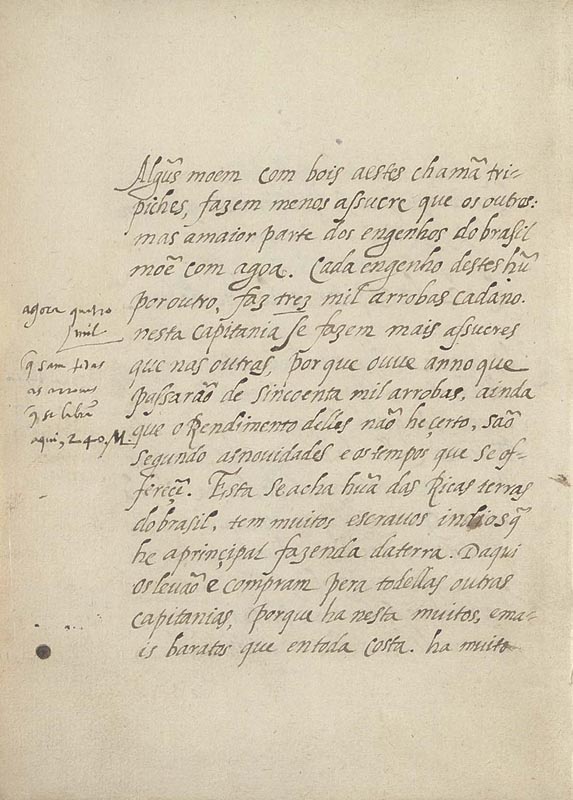 Algũs moem com bois aestes chamã tri-
piches, fazem menos assucre que os outros:
mas amaior parte dos engenhos dobrasil
moẽ com agoa. Cada engenho destes hũ
poroutro, faz trez mil arrobas cadano.
nesta capitania se fazem mais assucres
que nas outras, porque ouue anno que
passarão de sincoenta mil arrobas, ainda
que o Rendimento delles não heçerto, saõ
segundo asnouidades e os tempos que se of-
fereçẽ. Esta seacha hũa das Ricas terras
dobrasil, tem muitos escrauos indios q̃
he aprinçipal fazenda daterra. Daqui
osleuaõ e compram pera todellas outras
capitanias, porque ha nesta muitos, ema-
is baratos que entoda costa. ha muito
agora quatro
mil
q̃ sam
as
q̃ se
aqui, 240, M.